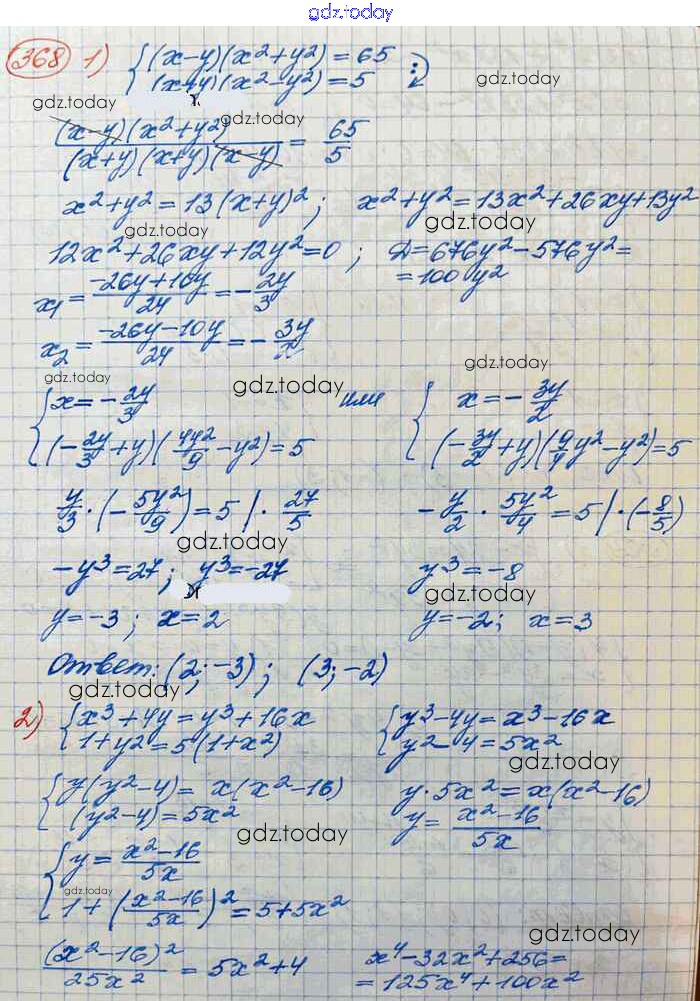 gdz.today
368 1) { (x-y)(x²+y²)=65
(x+y)(x²-y²)=5 :
gdz.today
gdz.today gdz.today
(x-y)(x²+y²) / (x+y)(x+y)(x-y) = 65/5
x²+y²=13(x+y)²; x²+y²=13x²+26xy+13y²
gdz.today gdz.today
12x²+26xy+12y²=0; D=676y²-576y²=
=100y²
x₁=(-26y+10y)/24=-2y/3
x₂=(-26y-10y)/24=-3y/2
gdz.today gdz.today gdz.today
{ x=-2y/3 или { x=-3y/2
(-2y/3+y)(4y²/9-y²)=5 (-3y/2+y)(9/4y²-y²)=5
y/3·(-5y²/9)=5 |·27/5 -y/2·5y²/4=5 |·(-8/5)
gdz.today
-y³=27; y³=-27 y³=-8
gdz.today
y=-3; x=2 y=-2; x=3
Ответ: (2;-3); (3;-2)
gdz.today
2) { x³+4y=y³+16x { y³-4y=x³-16x
1+y²=5(1+x²) y²-4=5x²
gdz.today
{ y(y²-4)=x(x²-16) y·5x²=x(x²-16)
(y²-4)=5x² y=(x²-16)/5x
gdz.today
{ y=(x²-16)/5x
gdz.today
1+((x²-16)/5x)²=5+5x²
gdz.today
(x²-16)²/25x²=5x²+4 x⁴-32x²+256=
=125x⁴+100x²